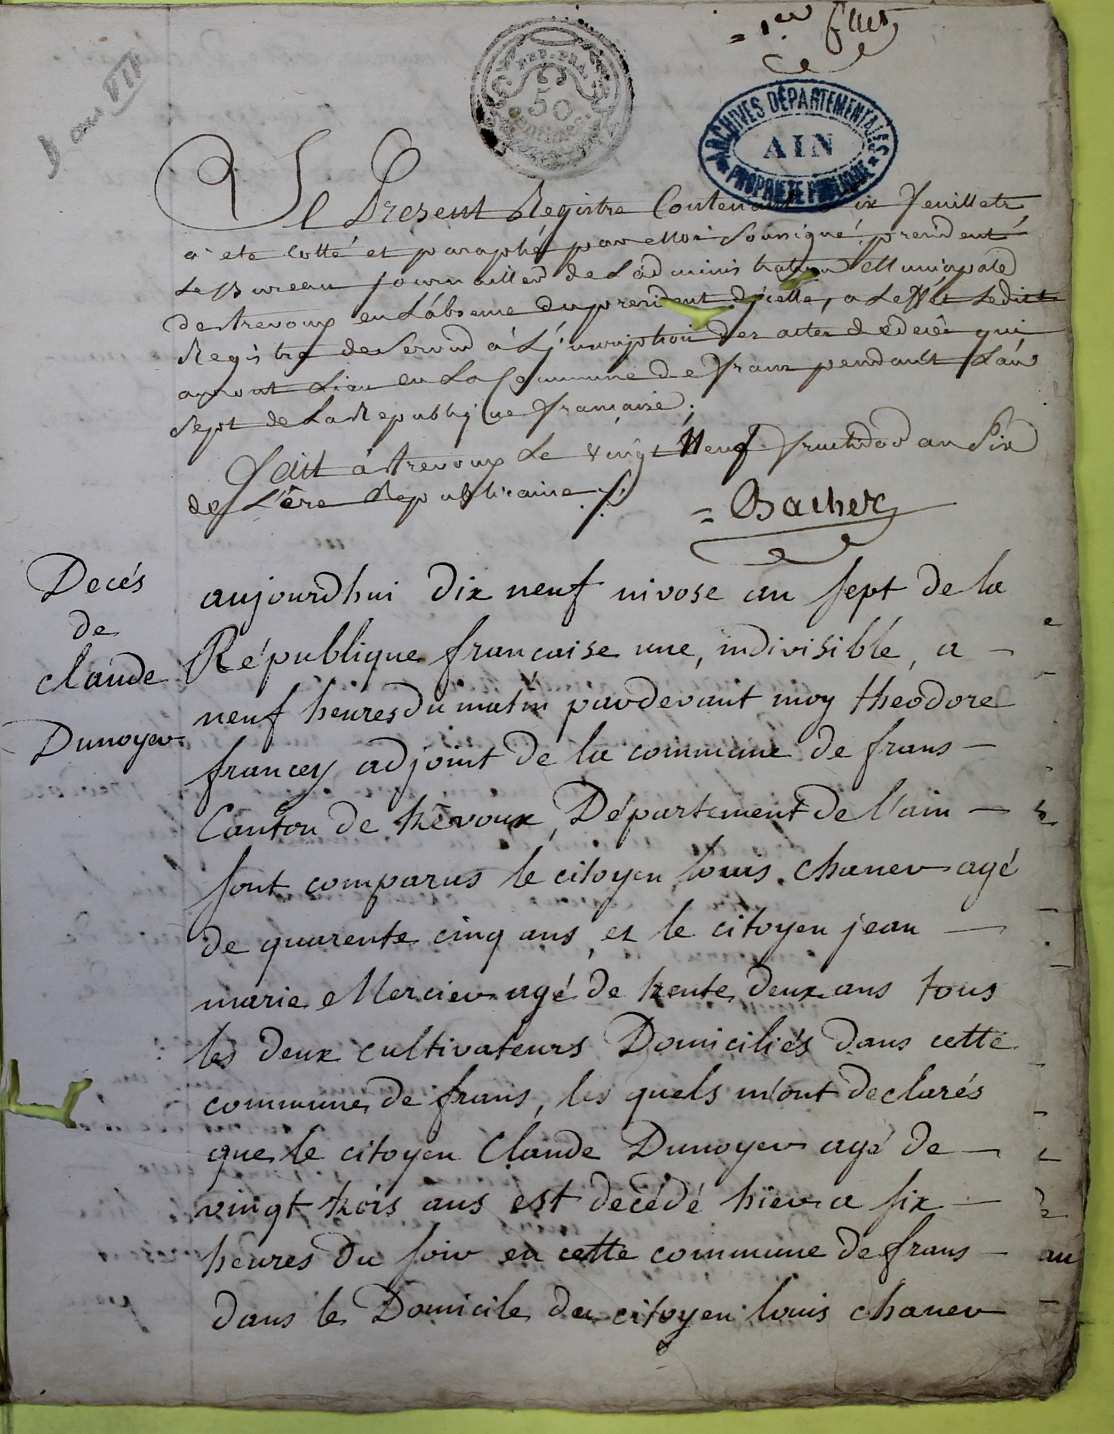 = 1er fllet
an VII
REP. FRA.
50
ARCHIVES DÉPARTEMENTALES
AIN
PROPRIÉTÉ PUBLIQUE
Le Present Registre Contenant six feuillets
a eté cotté et paraphé par moi Soussigné president
Le Bureau journallier de L'administration Municipale
de trevoux en L'absence du president d'icelle, a L'effet Ledit
Registre de Servir à L'inscription des actes de decès qui
auront Lieu en La Commune de frans pendant L'an
Sept de La Republique française.
fait à trevoux Le vingt Neuf fructidor an Six
de L'ère Republicaine ./.
= Bacher
Decés
de
claude
Dunoyer
aujourdhui dix neuf nivose an sept de la
République francaise une, indivisible, a -
neuf heures du matin pardevant moy theodore
francey adjoint de la commune de frans -
Canton de trévoux, Département de l'ain -
sont comparus le citoyen louis chaner agé
de quarente cinq ans, et le citoyen jean -
marie Mercier agé de trente deux ans tous
les deux cultivateurs Domiciliés dans cette
commune de frans, les quels m'ont declarés
que le citoyen Claude Dunoyer agé de -
vingt trois ans est decédé hier a six -
heures du soir en cette commune de frans -
dans le Domicile du citoyen louis chaner